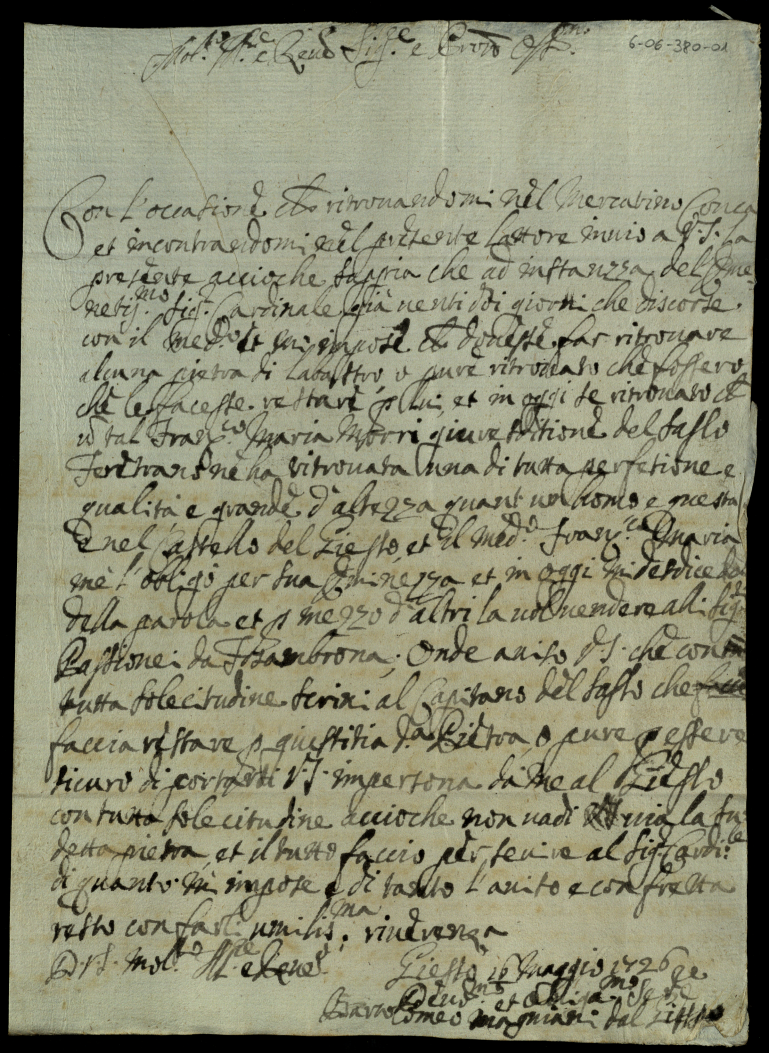 Mol.to Ill.re e Rev.do Sig.re e Pron Oss.mo
6-06-380-01
Con l'occasione ch ritrovandomi nel Mercatino Conca
et incontrandomi nel presente lattore invio a V.S. la
presente accioche sappia che ad instanzza del Eme-
netis.mo Sig.r Cardinale già venti doi giorni che discorse
con il med.o et mi impose ch dovesse far ritrovare
alcuna pietra di labastro o pure ritrovato che fossero
che le facesse restare p lui, et in oggi se ritrovato ch
un tal Fran.co Maria Morri giuresditione del Sasso
Feretrano ne ha ritrovata una di tutta perfetione e
qualità e grande d'altezza quant un homo e questa
è nel Castello del Giesso, et il med.o Fran.co Maria
me l'obligò per sua Eminezza et in oggi mi desdice
della parola et p mezzo d'altri la vol vendere alli Sig.ri
Passionei da Fosambrona; Onde aviso V.S. che con
tutta solecitudine scrivi al Capitano del Sasso che
faccia restare p giustitia d.a Pietra, o pure p essere
sicuro di portarsi V.S. impersona da me al Giesso
con tutta solecitudine accioche non vadi via la su-
detta pietra, et il tutto faccio per servire al Sig.r Cardi.le
di quanto mi impose e di tanto l'aviso e con fretta
resto con farli umilis.ma riverenza
D V.S. Mol.to Ill.re e Rev.do
Giesso 16 Maggio 1726
Dev.mo et Obliga.mo Se.re
Bartolomeo Magnani dal Giesso